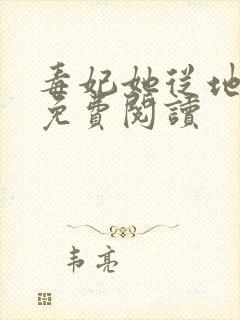 毒妃她从地
免費閱讀
韦亮